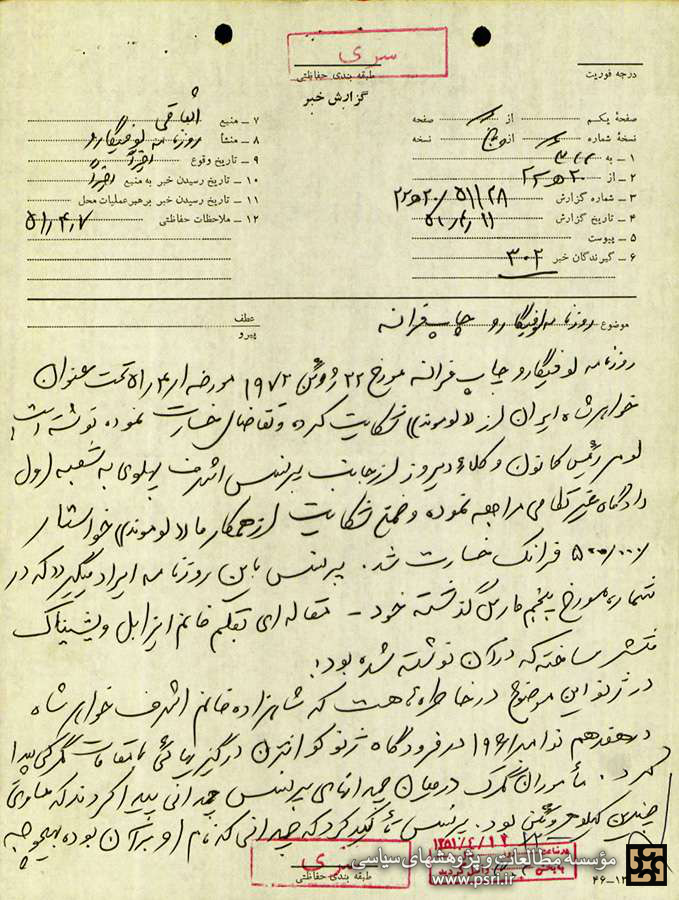 سری
طبقه بندی حفاظتی
گزارش خبر
درجه فوریت
صفحهٔ یکم از صفحه
نسخهٔ شماره از نسخه
۱ – به ۳۰۲
۲ – از ۲۰ ه ۲۲
۳ – شماره گزارش
۴ – تاریخ گزارش ۵۱/۴/۱۱
۵ – پیوست
۶ – گیرندگان خبر ۳۰۲
۷ – منبع اتفاقی
۸ – منشأ روزنامه لوفیگارو
۹ – تاریخ وقوع اخیراً
۱۰ – تاریخ رسیدن خبر به منبع اخیراً
۱۱ – تاریخ رسیدن خبر برهبر عملیات محل
۱۲ – ملاحظات حفاظتی ۵۱/۴/۷
موضوع روزنامه لوفیگارو چاپ فرانسه
عطف
پیرو
روزنامه لوفیگارو چاپ فرانسه مورخ ۲۲ ژوئن ۱۹۷۲ مورخه ۵۱/۴/۱ تحت عنوان
خواهر شاه ایران از «لوموند» شکایت کرده و تقاضای خسارت نموده نوشته است
رئیس کانون وکلاء دیروز از جانب پرنسس اشرف پهلوی به شعبه اول
دادگاه غیر نظامی مراجعه نموده و ضمن شکایت از همکار ما «لوموند» خواستار
۵۰۰/۰۰۰ فرانک خسارت شد. پرنسس باین روزنامه ایراد میگیرد که در
شماره مورخ پنجم مارس گذشته خود – مقاله‌ای بقلم خانم ایزابل ویشیناک
منتشر ساخته که در آن نوشته شده بود:
در ژنو این موضوع در خاطره‌ها هست که شاهزاده خانم اشرف خواهر شاه
در هفدهم نوامبر ۱۹۶۱ در فرودگاه ژنو کوانترن درگیریهائی با مقامات گمرکی پیدا
کرد. مأموران گمرک در میان چمدانهای پرنسس چمدانی پیدا کردند که حاوی
چندین کیلو هروئین بود. پرنسس تأکید کرد که چمدانی که نام او بر آن بوده بهیچوجه
سری
طبقه بندی حفاظتی
مؤسسه مطالعات و پژوهشهای سیاسی
www.psri.ir